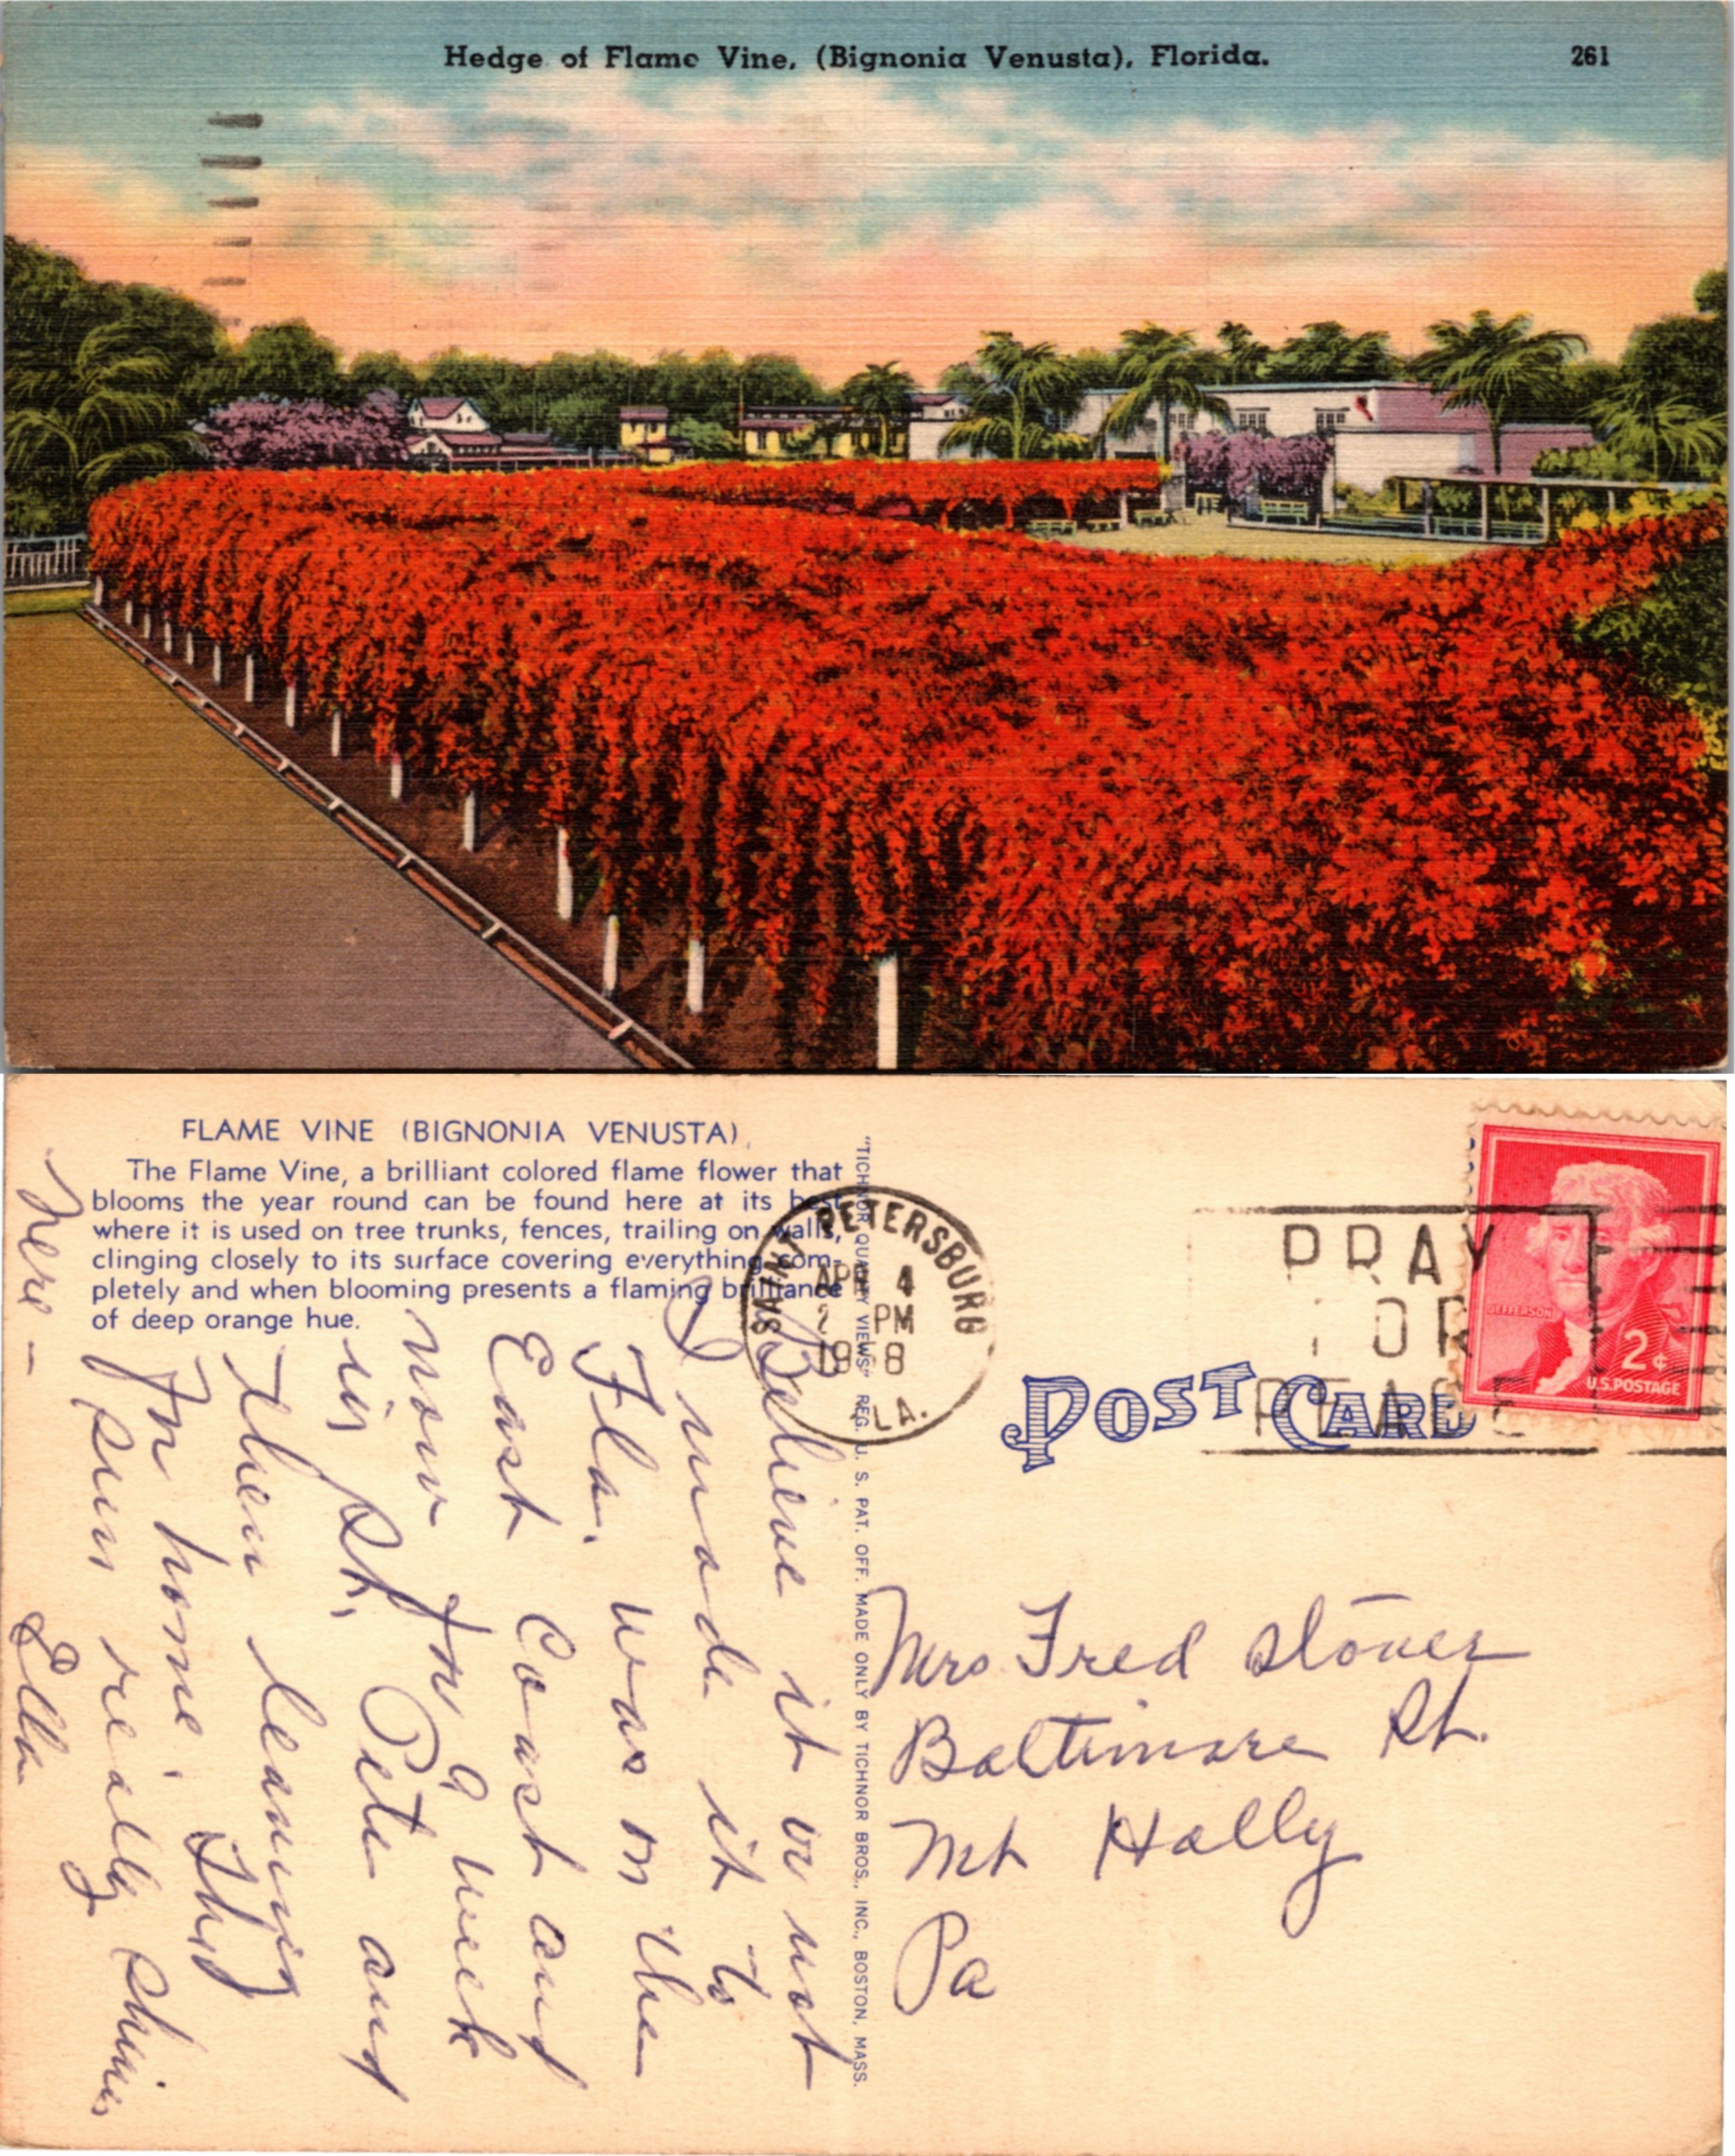 Hedge of Flame Vine, (Bignonia Venusta), Florida.
261
FLAME VINE (BIGNONIA VENUSTA)
The Flame Vine, a brilliant colored flame flower that
blooms the year round can be found here at its best
where it is used on tree trunks, fences, trailing on walls,
clinging closely to its surface covering everything com-
pletely and when blooming presents a flaming brilliance
of deep orange hue.
Believe it or not
I made it to
Fla. Was on the
East Coast and
now for a week
in St. Pete and
then leaving
for home. The
sun really shines
here -
Ella
"TICHNOR QUALITY VIEWS" REG. U. S. PAT. OFF. MADE ONLY BY TICHNOR BROS., INC., BOSTON, MASS.
SAINT PETERSBURG
APR 4
2 PM
FLA.
PRAY
FOR
PEACE
JEFFERSON
2¢
U.S. POSTAGE
POST CARD
Mrs Fred Stover
Baltimore St.
Mt Holly
Pa